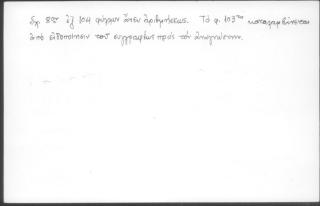 Σχ. 8ον ἐξ 104 φύλλων ἄνευ ἀριθμήσεως. Τὸ φ. 103ον καταλαμβάνεται
ἀπὸ εἰδοποίησιν τοῦ συγγραφέως πρὸς τὸν ἀναγνώστην.